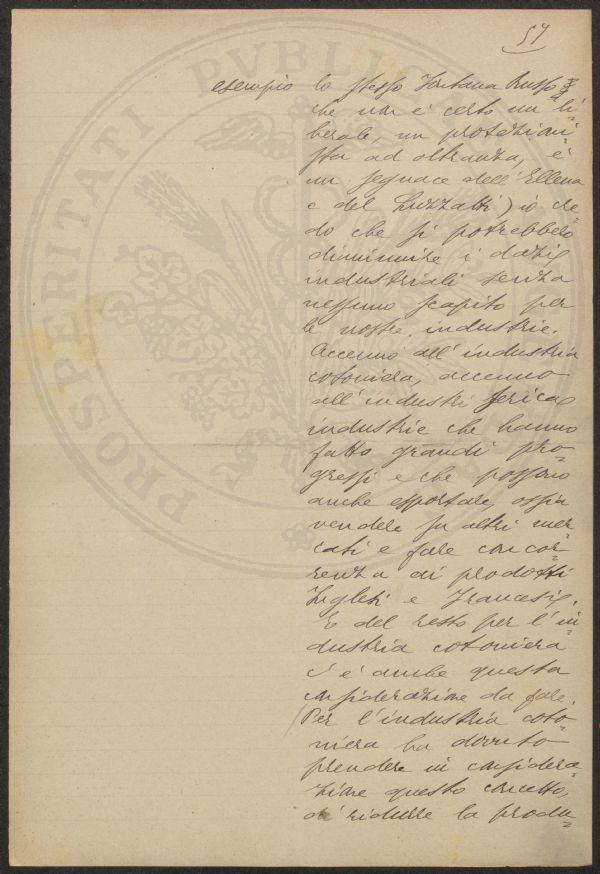 57
PROSPERITATI PVBLIC
esempio lo stesso Fontana Russo
che non è certo un li-
berale, un protezioni-
sta ad oltranza, è
un seguace dell'Ellena
e del Luzzatti) io cre-
do che si potrebbero
diminuire i dazi
industriali senza
nessuno scapito per
le nostre industrie.
Accenno all'industria
cotoniera, accenno
all'industri serica
industrie che hanno
fatto grandi pro-
gressi e che possono
anche esportare, ossia
vendere su altri mer-
cati e fare concor-
renza ai prodotti
Inglesi e Francesi.
E del resto per l'in-
dustria cotoniera
c'è anche questa
considerazione da fare.
Per l'industria coto-
niera ha dovuto
prendere in considera-
zione questo concetto,
di ridurre la produ-